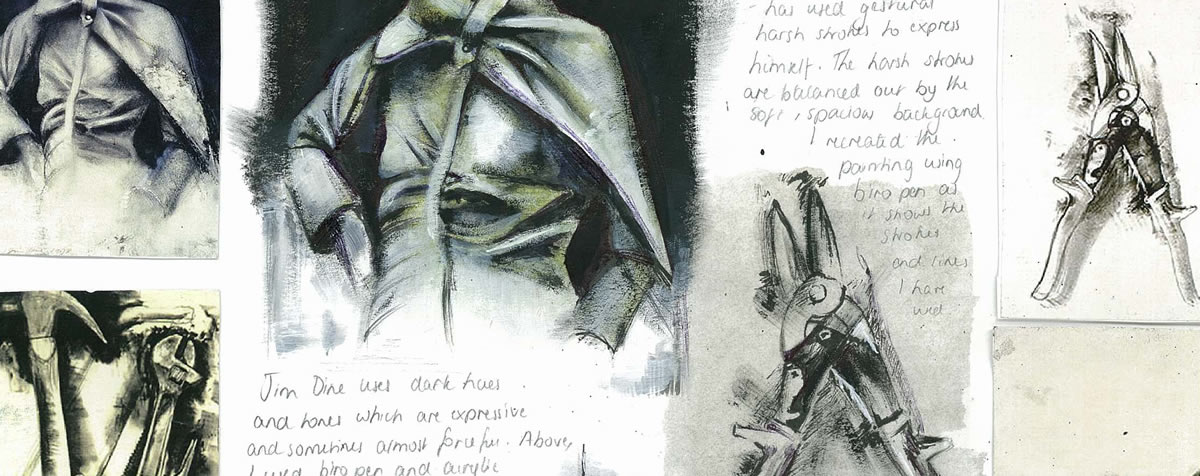 - has used gestural
harsh strokes to express
himself. The harsh strokes
are balanced out by the
soft, spacious background.
I recreated the
painting using
biro pen as
it shows the
strokes
and lines
I have
used
Jim Dine uses dark hues
and tones which are expressive
and sometimes almost forceful. Above,
I used biro pen and acrylic